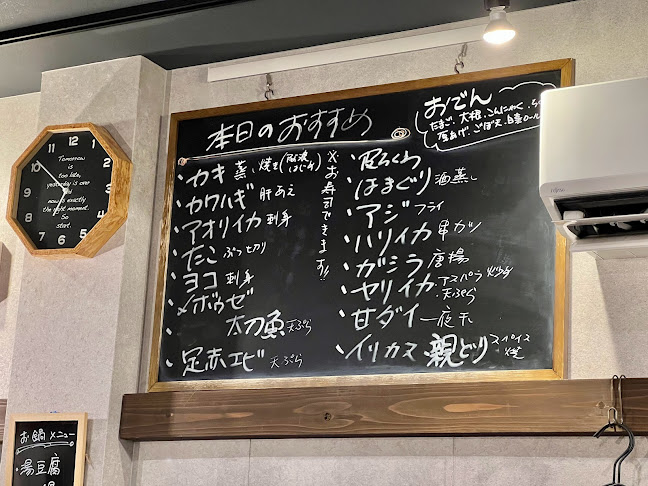 本日のおすすめ
おでん
たまご、大根、こんにゃく、ち
厚あげ、ごぼ天、
・カキ 蒸し 焼き
・カワハギ 肝あえ
・アオリイカ 刺身
・たこ ぶつ切り
・ヨコ 刺身
・メボウゼ
・太刀魚 天ぷら
・足赤エビ 天ぷら
※お寿司できます!!
・はまぐり 酒蒸し
・アジ フライ
・ハリイカ 串カツ
・ガシラ 唐揚
・ヤリイカ アスパラ炒め
天ぷら
・甘ダイ 一夜干
・イリカス 親どり スパイス
焼
12
1
2
3
4
5
6
7
8
9
10
11
Tomorrow
is
too late,
yesterday is over
and
now is exactly
the right moment.
So
start.
FUJITSU
お鍋メニュー
・湯豆腐